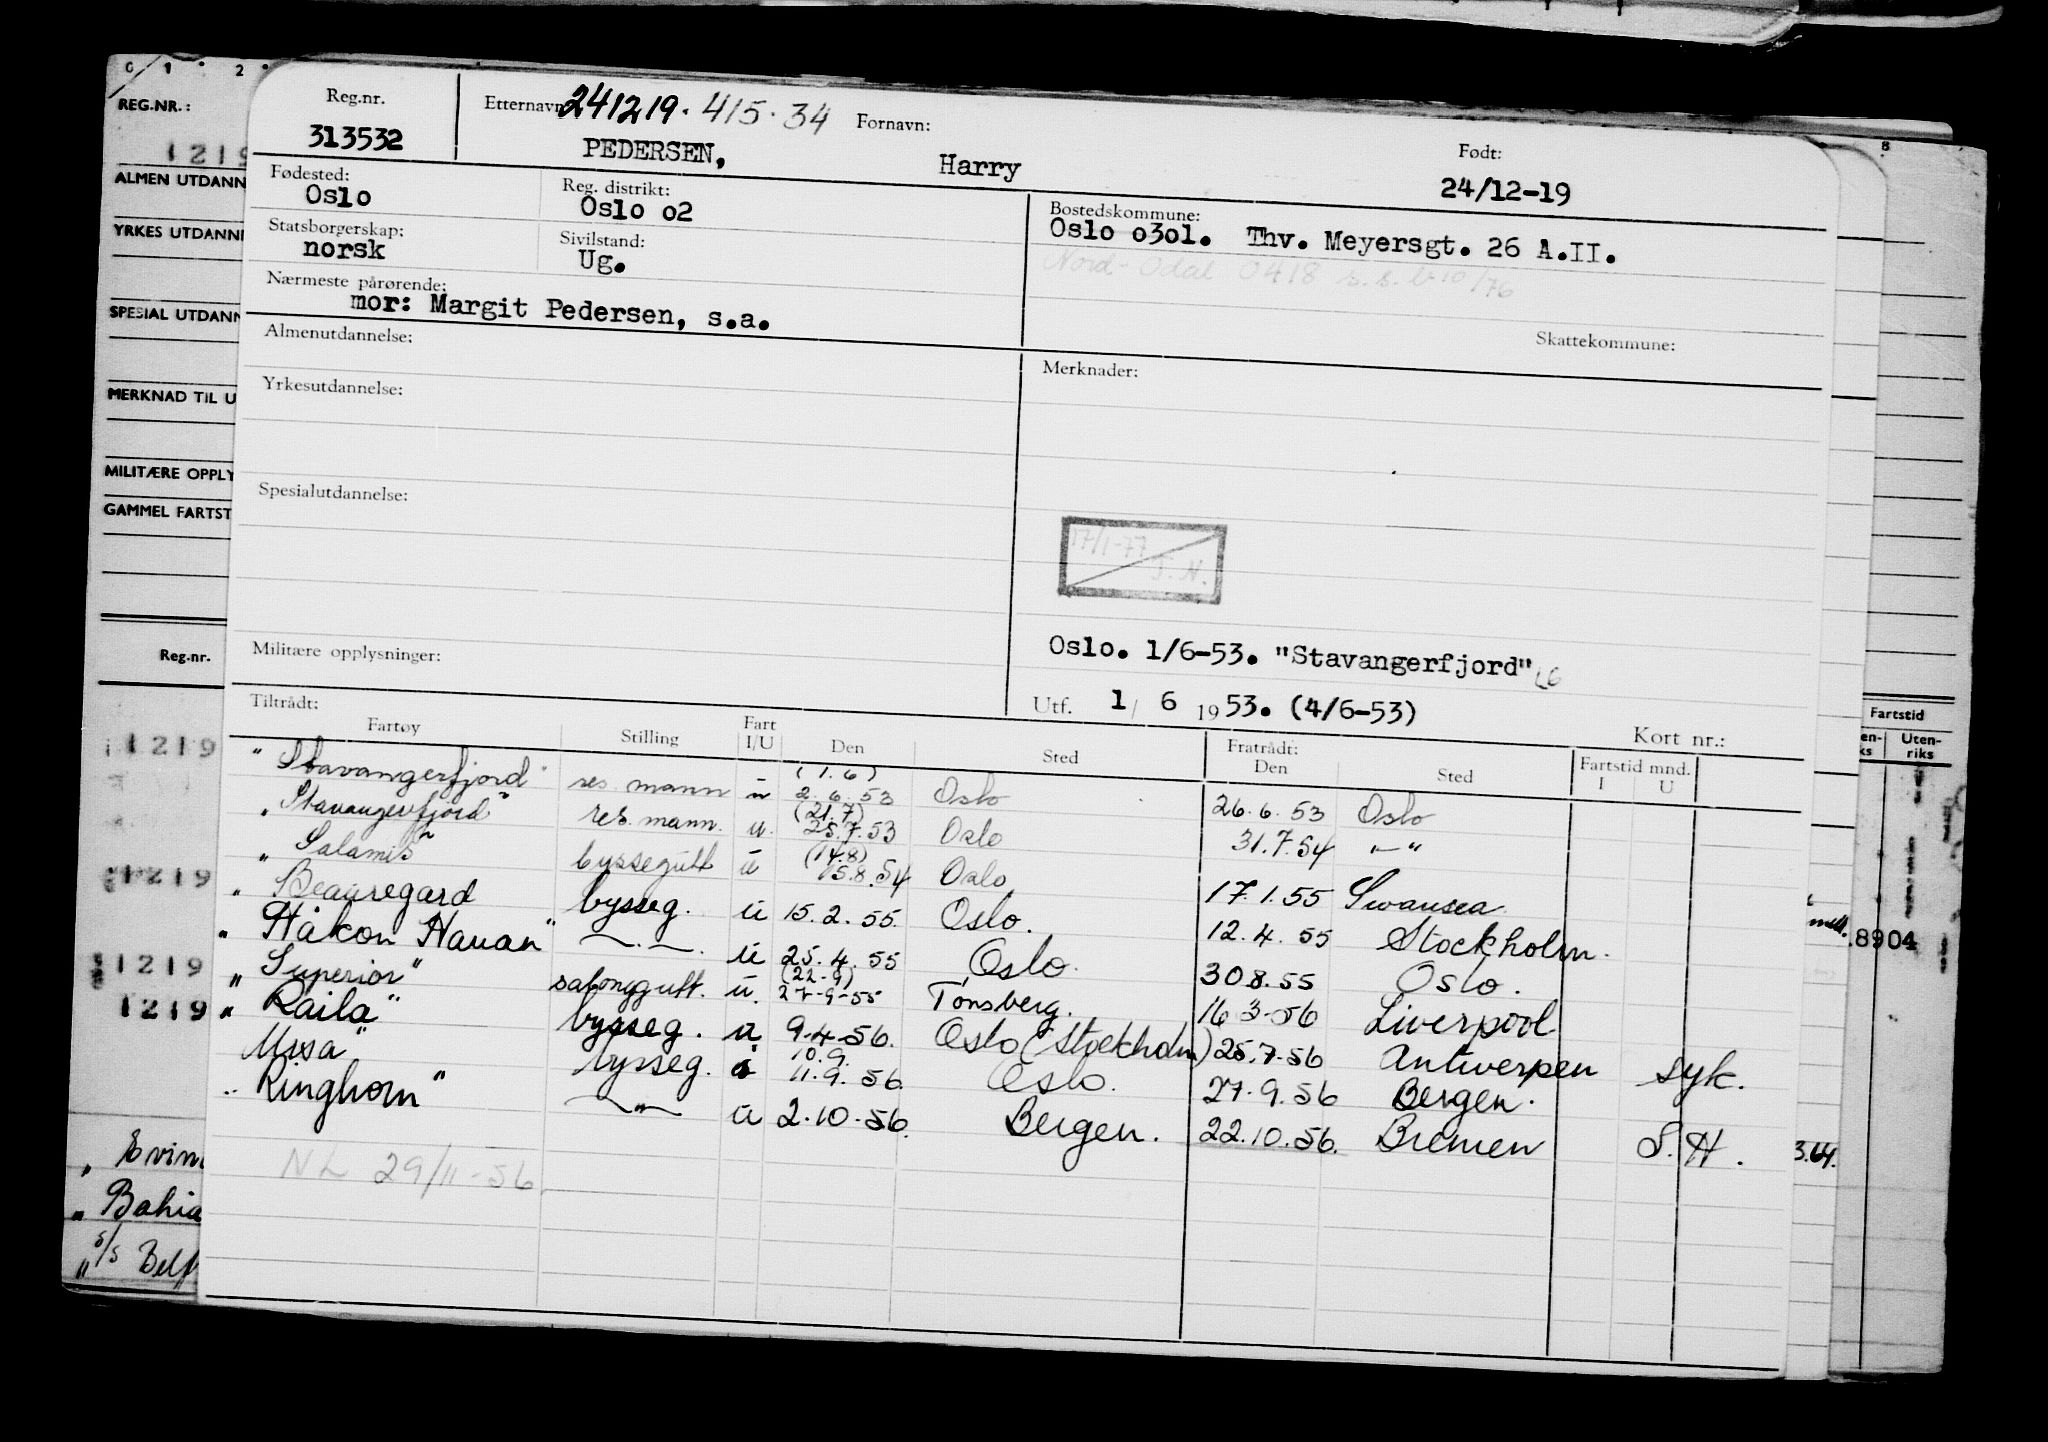 C 1 2
REG.NR.:
1219
ALMEN UTDANN
YRKES UTDANN
SPESIAL UTDANN
MERKNAD TIL U
MILITÆRE OPPLY
GAMMEL FARTST
Reg.nr.
1219
1219
1219
1219
" Bahia
" s/s Belf
Reg.nr.
313532
Etternavn: 241219. 415.34 Fornavn:
PEDERSEN, Harry
Født:
24/12-19
Fødested:
Oslo
Reg. distrikt:
Oslo o2
Statsborgerskap:
norsk
Sivilstand:
Ug.
Bostedskommune:
Oslo o3o1. Thv. Meyersgt. 26 A.II.
Nord-Odal 0418 10/76
Nærmeste pårørende:
mor: Margit Pedersen, s.a.
Skattekommune:
Almenutdannelse:
Merknader:
Yrkesutdannelse:
Spesialutdannelse:
17/1-77
T.N.
Militære opplysninger:
Oslo. 1/6-53. "Stavangerfjord"
Utf. 1/ 6 1953. (4/6-53)
Kort nr.:
Tiltrådt:
Fartøy Stilling Fart I/U Den Sted Fratrådt: Den Sted Fartstid mnd. I U
"Stavangerfjord" res. mann u (1.6) 2.6.53 Oslo 26.6.53 Oslo
"Stavangerfjord" res. mann. u. (21.7) 25.7.53 Oslo 31.7.54 -"-
"Salamis" byssegutt u (14.8) 15.8.54 Oslo 17.1.55 Swansea
"Beauregard bysseg. u 15.2.55. Oslo. 12.4.55 Stockholm.
"Håkon Hauan" -"-. u 25.4.55 Oslo. 30.8.55 Oslo.
"Superior" salonggutt. u. (22-9) 27-9-55 Tønsberg. 16 3-56 Liverpool
"Raila" bysseg. u 9.4-56. Oslo (Stockholm) 25.7-56 Antwerpen syk.
Mosa" bysseg. 10.9. 11.9.56. Oslo. 27.9.56 Bergen.
"Ringhorn" -"- u 2.10.56. Bergen. 22.10.56. Bremen S.H.
NL 29/11-56.
8
Fartstid
Uten-
riks
8904
3.64.